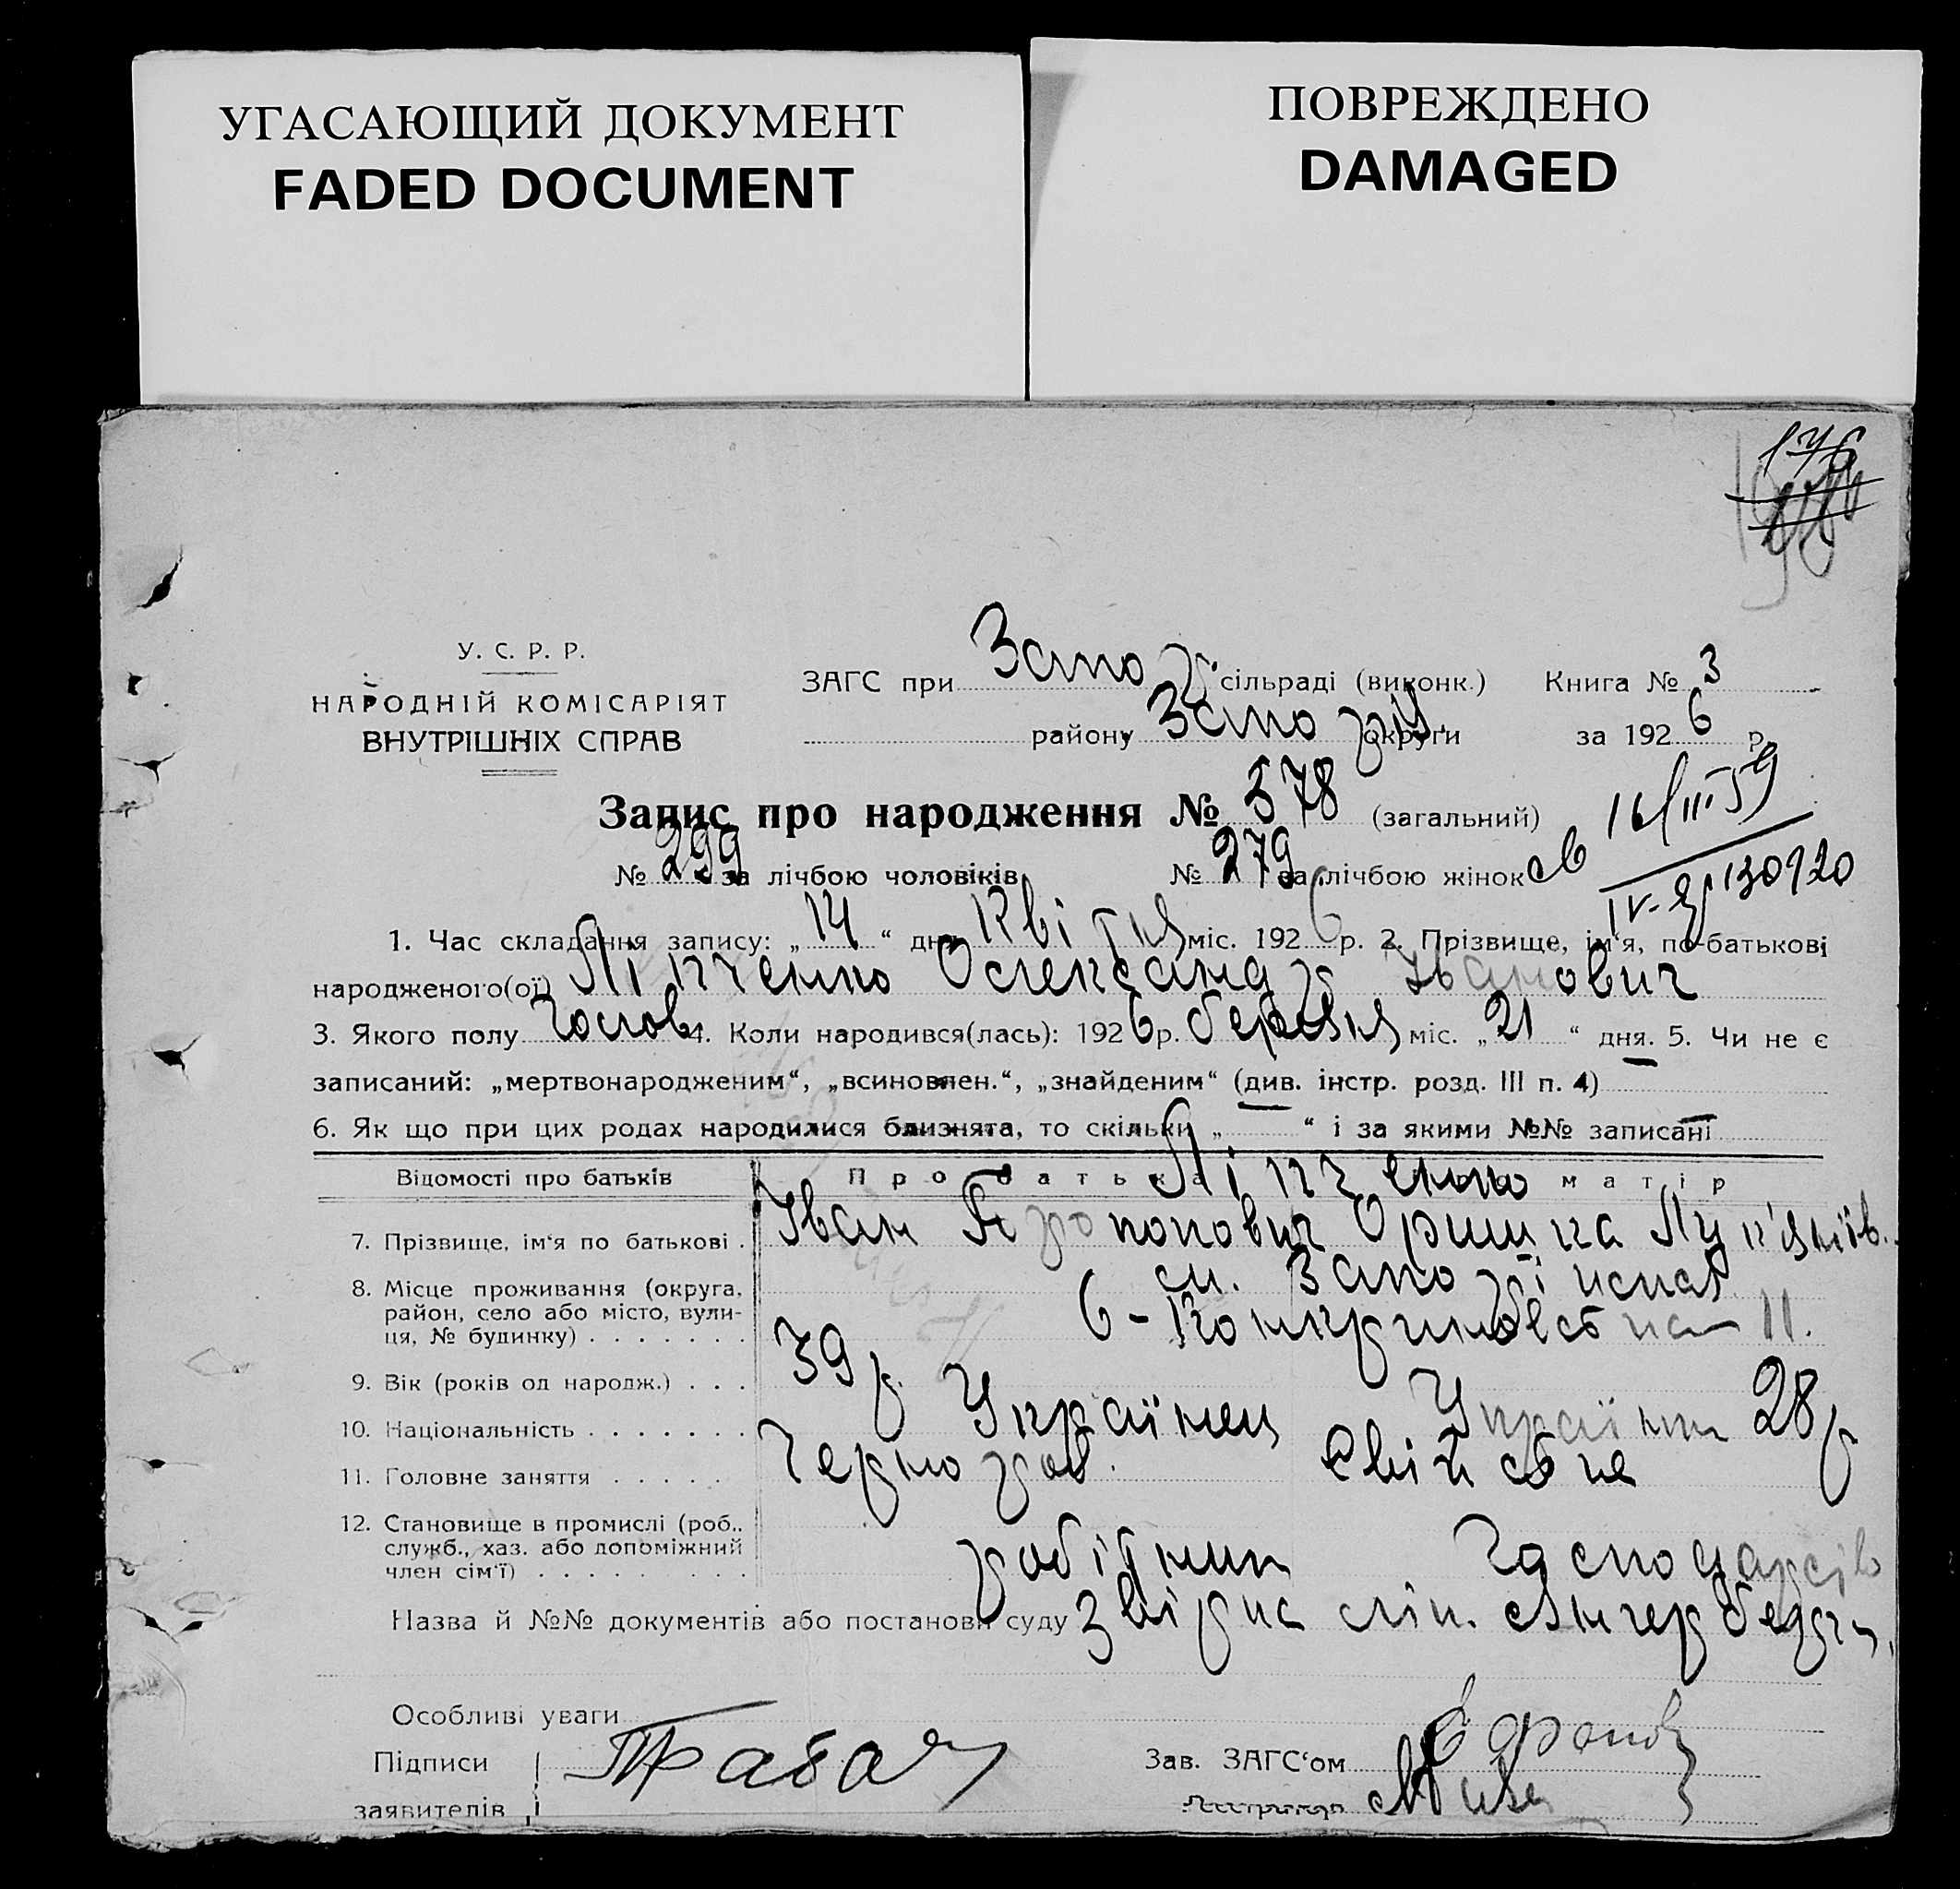 УГАСАЮЩИЙ ДОКУМЕНТ
FADED DOCUMENT
ПОВРЕЖДЕНО
DAMAGED
176
У. С. Р. Р.
НАРОДНІЙ КОМІСАРІЯТ
ВНУТРІШНІХ СПРАВ
ЗАГС при Запор. сільраді (виконк.) Книга № 3
району Запоріз. округи за 1926 р.
Запис про народження № 578 (загальний)
№ 299 за лічбою чоловіків № 279 за лічбою жінок
16/III 59
130920
1. Час складання запису: „14“ дня Квітня міс. 1926 р. 2. Прізвище, ім'я, по-батькові
народженого(ої) Ліпченко Олександр Іванович
3. Якого полу Чолов. 4. Коли народився(лась): 1926 р. березня міс. „21“ дня. 5. Чи не є
записаний: „мертвонародженим“, „всиновлен.“, „знайденим“ (див. інстр. розд. III п. 4)
6. Як що при цих родах народилися близнята, то скільки „ “ і за якими №№ записані
Відомості про батьків Про батька матір
Ліпченко
7. Прізвище, ім'я по батькові . Іван Оришка Лук'янів.
8. Місце проживання (округа, район, село або місто, вулиця, № будинку) . . . . . . . м. Запоріжжя
11.
9. Вік (років од народж.) . . . 39 р. 28 р.
10. Національність . . . . . . . Українец Українка
11. Головне заняття . . . . . Чернороб. Свійське
12. Становище в промислі (роб., служб., хаз. або допоміжний член сім'ї) . . . . . . . . . робітник господарств
Назва й №№ документів або постанови суду
Особливі уваги
Підписи
заявителів
Зав. ЗАГС'ом